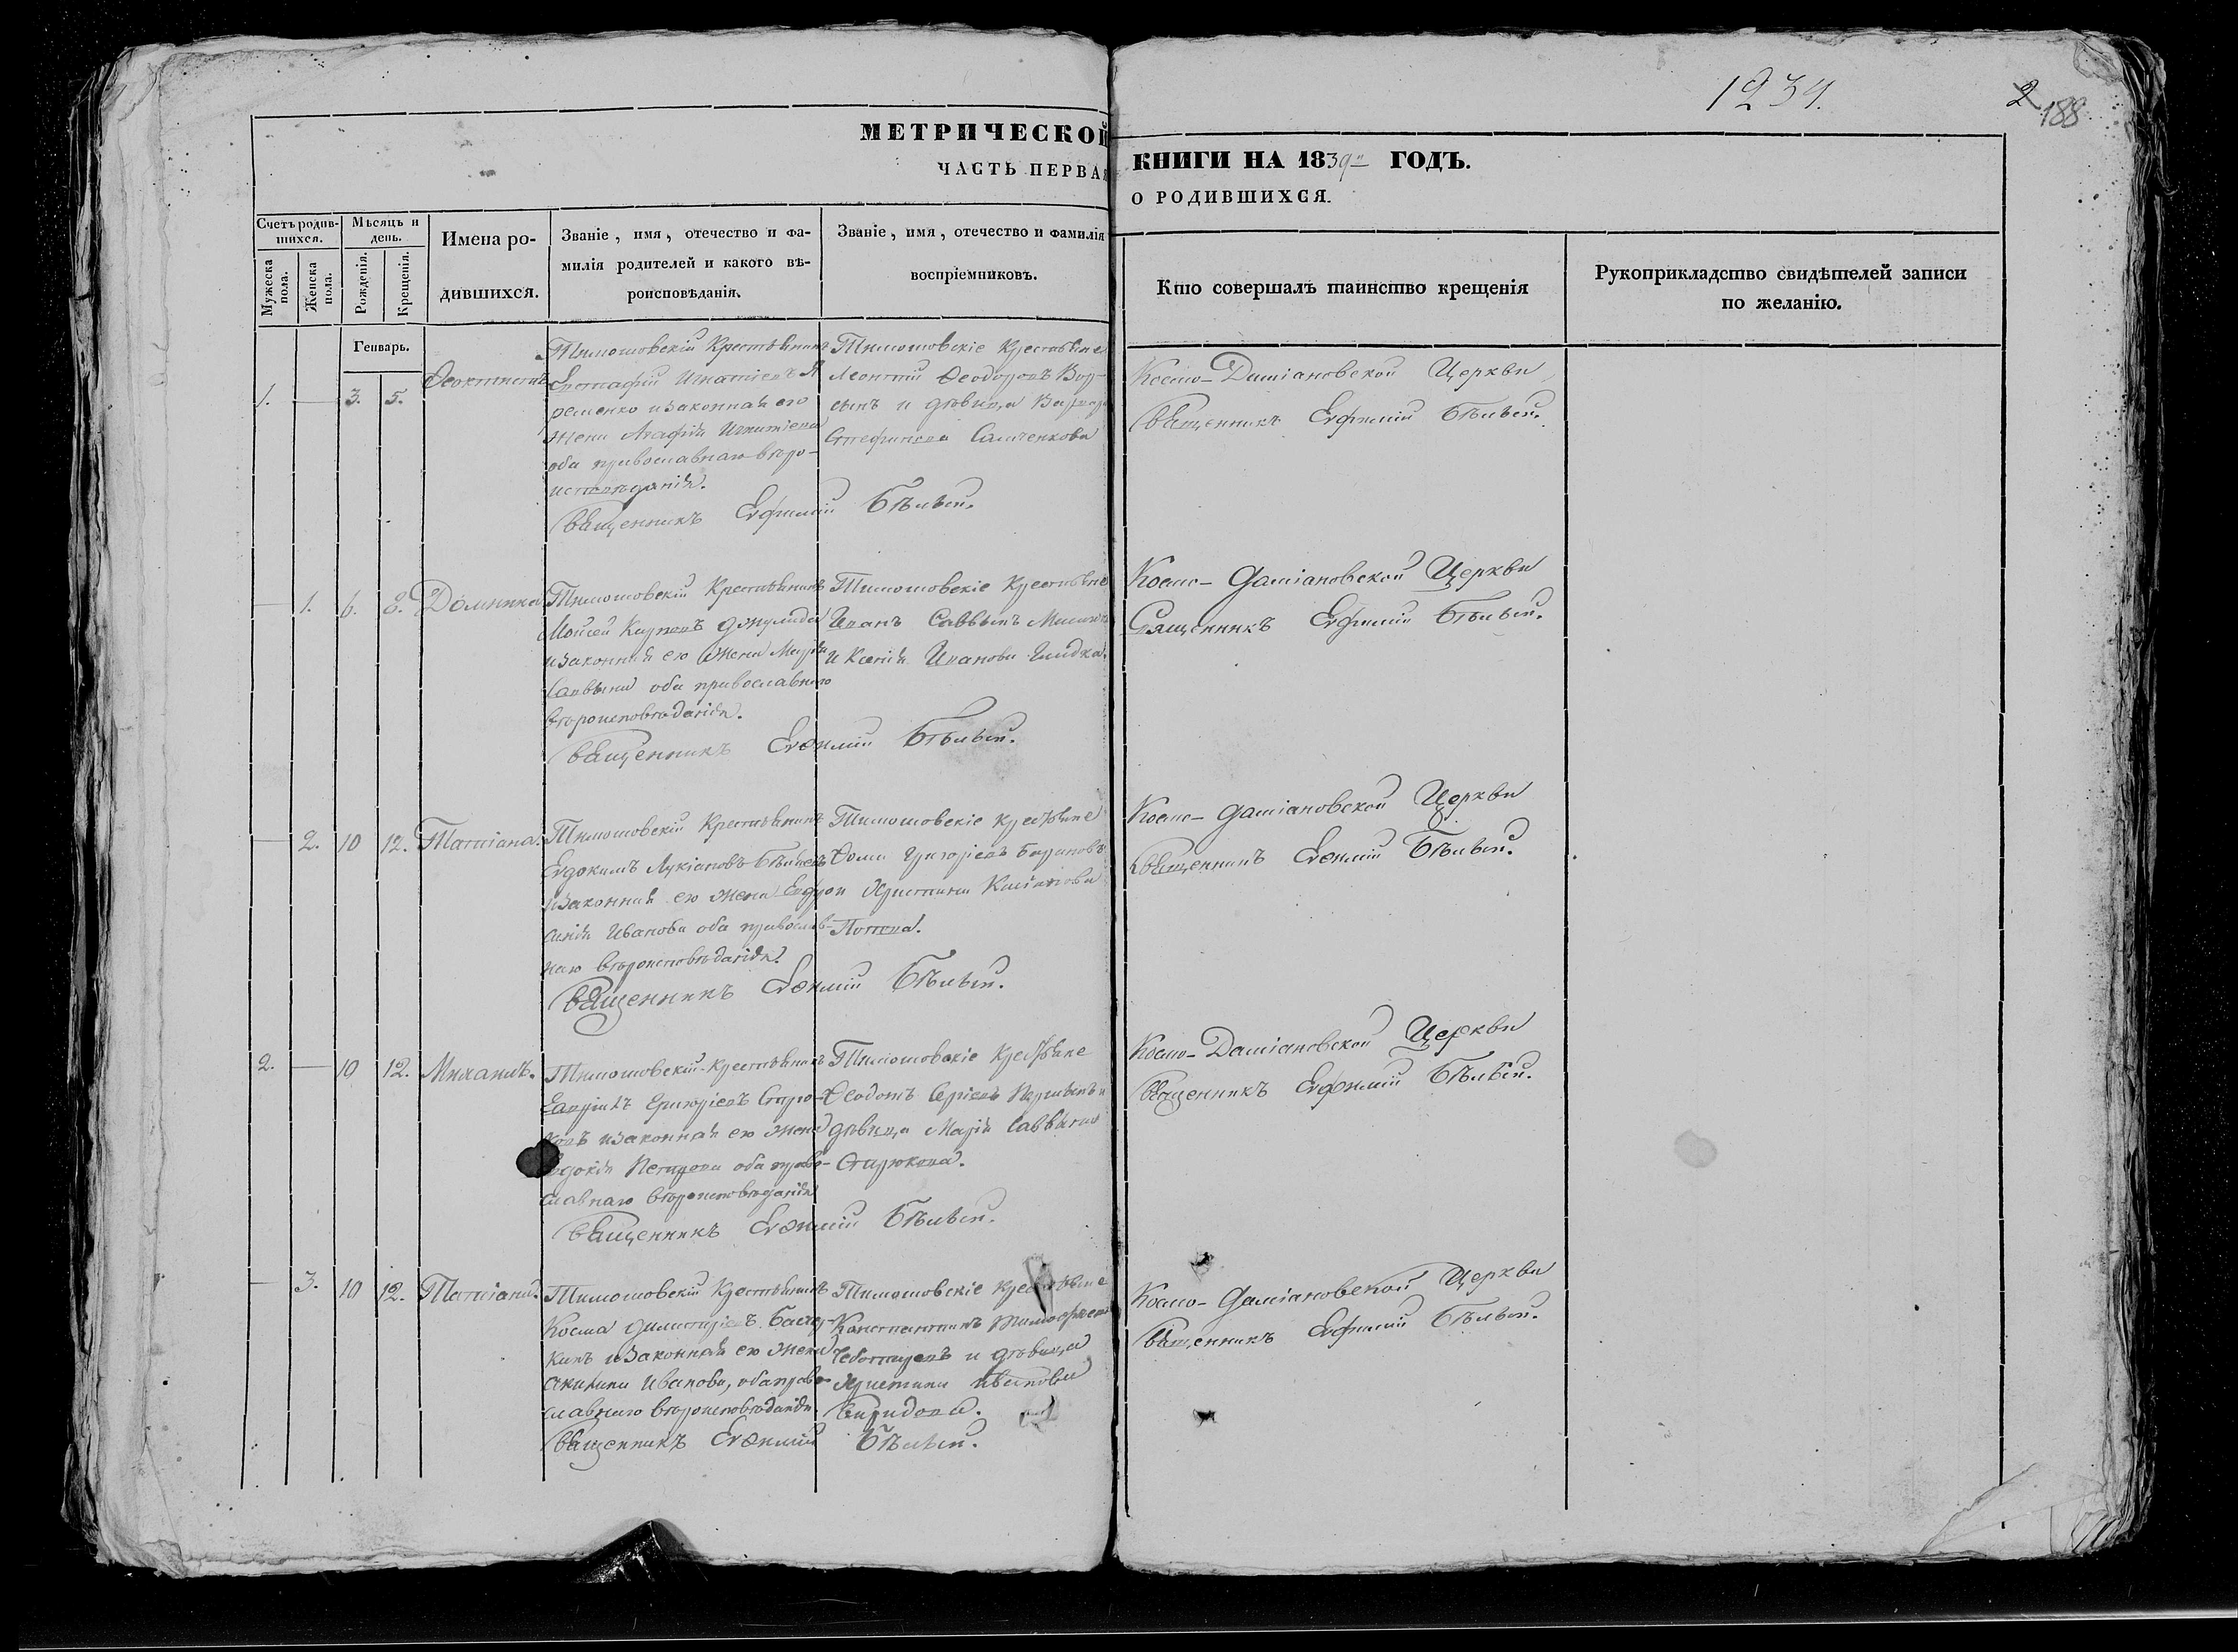 1234.
2
188
МЕТРИЧЕСКОЙ КНИГИ НА 1839 ГОДЪ.
ЧАСТЬ ПЕРВАЯ О РОДИВШИХСЯ.
Счетъ родив-
шихся.
Мужеска пола.
Женска пола.
Мѣсяць и
день.
Рожденія.
Крещенія.
Имена ро-
дившихся.
Званіе, имя, отечество и фа-
милія родителей и какого вѣ-
роисповѣданія.
Званіе, имя, отечество и фамилія
воспріемниковъ.
Кто совершалъ таинство крещенія
Рукоприкладство свидѣтелей записи
по желанію.
Генварь.
1. — 3. 5.
Ѳеоктистъ
Тимошовскій Крестьянинъ
Евстафій Игнатіевъ Я
ременко и законная его
жена Агафія Игнатіева
оба православнаго вѣро-
исповѣданія.
Священникъ Евфимій Бѣлый.
Тимошовскіе Крестьяне
Леонтій Ѳеодоровъ
и дѣвица
Стефанова Самченкова
Космо-Даміановской Церкви
Священникъ Евфимій Бѣлый.
— 1. 6. 8. Домникія
Тимошовскій Крестьянинъ
Моисей Карповъ Джулида
и законная его жена Марія
Саввина оба православнаго
вѣроисповѣданія.
Священникъ Евфимій Бѣлый.
Тимошовскіе Крестьяне
Иванъ Саввинъ
и Ксенія Иванова
Космо-Даміановской Церкви
Священникъ Евфимій Бѣлый.
— 2. 10 12. Татіана.
Тимошовскій Крестьянинъ
Евдокимъ Лукіановъ
и законная его жена Евфро
синія Иванова оба православ-
наго вѣроисповѣданія.
Священникъ Евфимій Бѣлый.
Тимошовскіе Крестьяне
Ѳома Григоріевъ Барановъ
и Христина
Попова.
Космо-Даміановской Церкви
Священникъ Евфимій Бѣлый.
2. — 10 12. Михаилъ.
Тимошовскій Крестьянинъ
Гавріилъ Григоріевъ Старю-
ковъ и законная его жена
Евдокія Петрова оба право-
славнаго вѣроисповѣданія
Священникъ Евфимій Бѣлый.
Тимошовскіе Крестьяне
Ѳеодотъ
дѣвица Марія Саввина
Старюкова.
Космо-Даміановской Церкви
Священникъ Евфимій Бѣлый.
— 3. 10 12. Татіана.
Тимошовскій Крестьянинъ
Косма Димитріевъ
и законная его жена
Акилина Иванова, оба право-
славнаго вѣроисповѣданія.
Священникъ Евфимій Бѣлый.
Тимошовскіе Крестьяне
Константинъ Тимофеевъ
Чеботаревъ и дѣвица
Христина Иванова
Космо-Даміановской Церкви
Священникъ Евфимій Бѣлый.